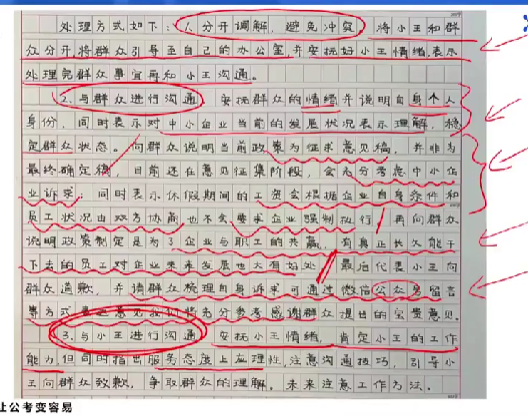 处理方式如下：1.分开调解，避免冲突。将小王和群
众分开，将群众引导至自己的办公室并安抚好小王情绪，表示
处理完群众事宜再和小王沟通。
2.与群众进行沟通。安抚群众的情绪并说明自身个人
身份，同时表示对中小企业当前的发展状况表示理解，稳
定群众状态。向群众说明当前政策为征求意见稿，并非为
最终确定稿，目前还在意见征集阶段，会充分考虑中小企
业诉求；同时表示休假期间的工资会根据企业自身条件和
员工状况由双方协商，也不会要求企业强制执行，再向群众
说明政策制定是为了企业与职工的共赢，有真正长久能干
下去的员工对企业未来发展也大有好处。最后代表小王向
群众道歉，并请群众梳理自身诉求可通过微信公众号留言
等方式 意见 将充分考虑感谢群众提出的宝贵意见。
3.与小王进行沟通。安抚小王情绪，肯定小王的工作
能力，但同时指出服务态度上应理性，注意沟通技巧，引导小
王向群众致歉，争取群众的理解。未来注意工作方法。
让公考变容易